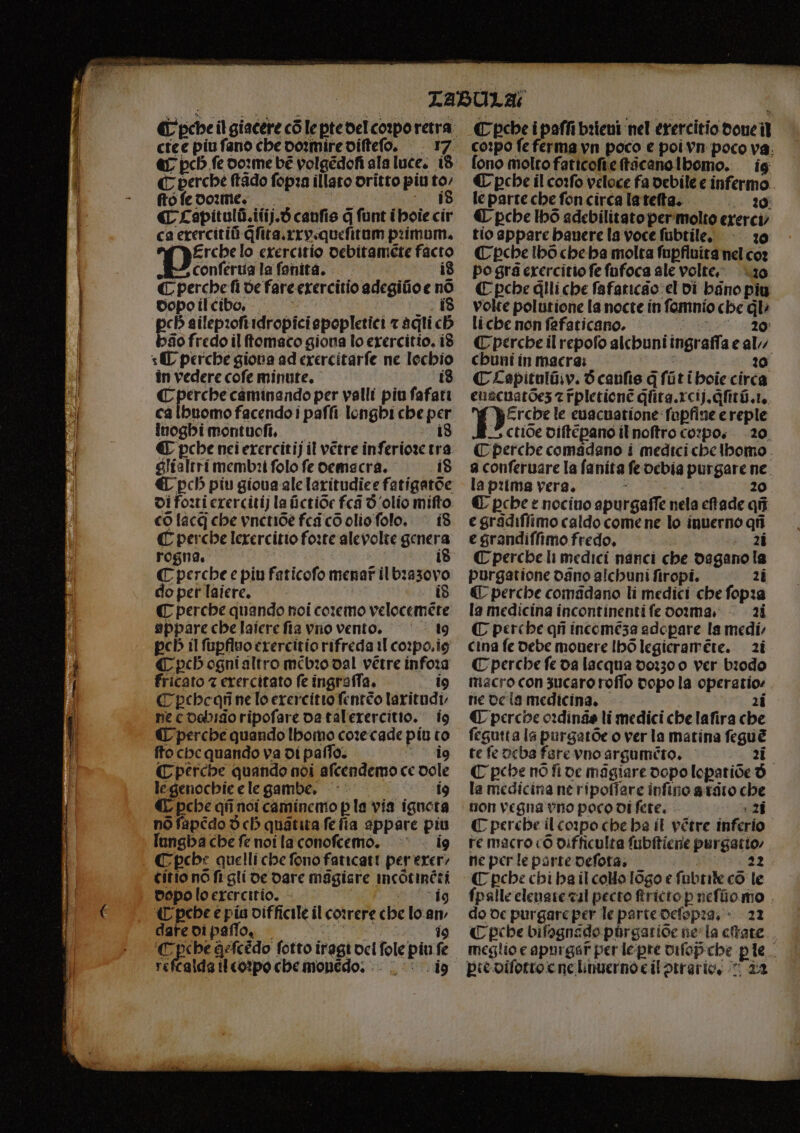 TABULA
¶ pche il giacere cõ le pte del corpo retra
cte e piu sano che dormire disteso. 17
¶ pch se dorme bẽ volgẽdosi ala luce. i8
¶ perche stãdo sopra il lato dritto piu to/
sto se dorme. i8
¶ Capitulũ.iiij.d causis q̃ sunt i hoie cir
ca exercitiũ q̃sita.xxv.quesitum primum.
PErche lo exercitio debitamẽte facto
conserua la sanita. i8
¶ perche si de fare exercitio adegiũo e nõ
dopo il cibo. i8
pch ali leprosi idropici apopletici ⁊ aq̃li ch
hão fredo il stomaco gioua lo exercitio. i8
¶ perche gioua ad exercitarse ne lochio
in vedere cose minute. i8
¶ perche caminando per valli piu safati
ca lhuomo facendo i passi longhi che per
luoghi montuosi. i8
¶ pche nei exercitij il vẽtre inferiore tra
glialtri membri solo se demacra. i8
¶ pch piu gioua ale laxitudie e fatigatõe
di forti exercitij la ũctiõe fcã d olio misto
cõ lacq̃ che vnctiõe fcã cõ olio solo. i8
¶ perche lexercitio forte ale volte genera
rogna. i8
¶ perche e piu faticoso menar̃ il brazo vo
do per laiere. i8
¶ perche quando noi coremo velocemẽte
appare che laiere sia vno vento. 19
pch il supfluo exercitio rifreda il corpo. i9
¶ pch ogni altro mẽbro dal vẽtre infora
fricato ⁊ exercitato se ingrassa. i9
¶ pche qñ ne lo exercitio sentẽo laxitudi/
ne e debião riposare da tal exercitio. i9
¶ perche quando lhomo core cade piu to
sto che quando va di passo. i9
¶ perche quando noi ascendemo ce dole
le genochie e le gambe. i9
¶ pche qñ noi caminemo p la via ignota
nõ sapẽdo d ch quãtita se sia appare piu
lungha che se noi la conoscemo. i9
¶ pche quelli che sono faticati per exer/
citio nõ si gli de dare mãgiare incõtinẽti
dopo lo exercitio. i9
¶ pche e piu difficile il correre che lo an/
dare di passo. i9
¶ pche q̃escẽdo sotto i ragi del sole piu se
rescalda il corpo che mouẽdo. i9
¶ pche i passi brieui nel exercitio doue il
corpo se ferma vn poco e poi vn poco va
sono molto faticosi e stãcano lhomo. i9
¶ pche il corso veloce fa debile e infermo
le parte che son circa la testa. 20
¶ pche lhõ adebilitato per molto exerci/
tio appare hauere la voce subtile. 20
¶ pche lhõ che ha molta supfluita nel cor
po grã exercitio se sufoca ale volte. 20
¶ pche q̃lli che safaticão el di hãno piu
volte polutione la nocte in somnio che q̃l/
li che non safaticano. 20
¶ perche il reposo alchuni ingrassa e al//
chuni in macra. 20
¶ Capitulũ.v. d causis q̃ sũt i hoie circa
euacuatõeʒ ⁊ r̃pletionẽ q̃sita.xcij.q̃sitũ.i.
PErche le euacuatione supflue e reple
ctiõe distẽpano il nostro corpo. 20
¶ perche comãdano i medici che lhomo
a conseruare la sanita se debia purgare ne
la prima vera. 20
¶ pche e nociuo apurgasse nela estade qñ
e grãdissimo caldo come ne lo inuerno qñ
e grandissimo fredo. 2i
¶ perche li medici nanci che dagano la
purgatione dãno alchuni siropi. 2i
¶ perche comãdano li medici che sopra
la medicina incontinenti se dorma. 2i
¶ perche qñ incomẽza ad opare la medi/
cina se debe mouere lhõ legieramẽte. 2i
¶ perche se da lacqua dorzo o ver brodo
macro con zucaro rosso dopo la operatio/
ne de la medicina. 2i
¶ perche ordinão li medici che la sira che
seguita la purgatõe o ver la matina seguẽ
te se deba fare vno argumẽto. 2i
¶ pche nõ si de mãgiare dopo lopatiõe d
la medicina ne ripossare insino a tãto che
non vegna vno poco di sete. 2i
¶ perche il corpo che ha il vẽtre inferio
re macro cõ difficulta substiene purgatio/
ne per le parte desota. 22
¶ pche chi ha il collo lõgo e subtile cõ le
spalle eleuate ⁊ il pecto stricto p nesũo mo
do de purgare per le parte desopra. 22
¶ pche bisognãdo purgatiõe ne la estate
meglio e apurgar̃ per le pte disop̃ che p le
pte disotto e ne linuerno e il ꝯtrario. 22